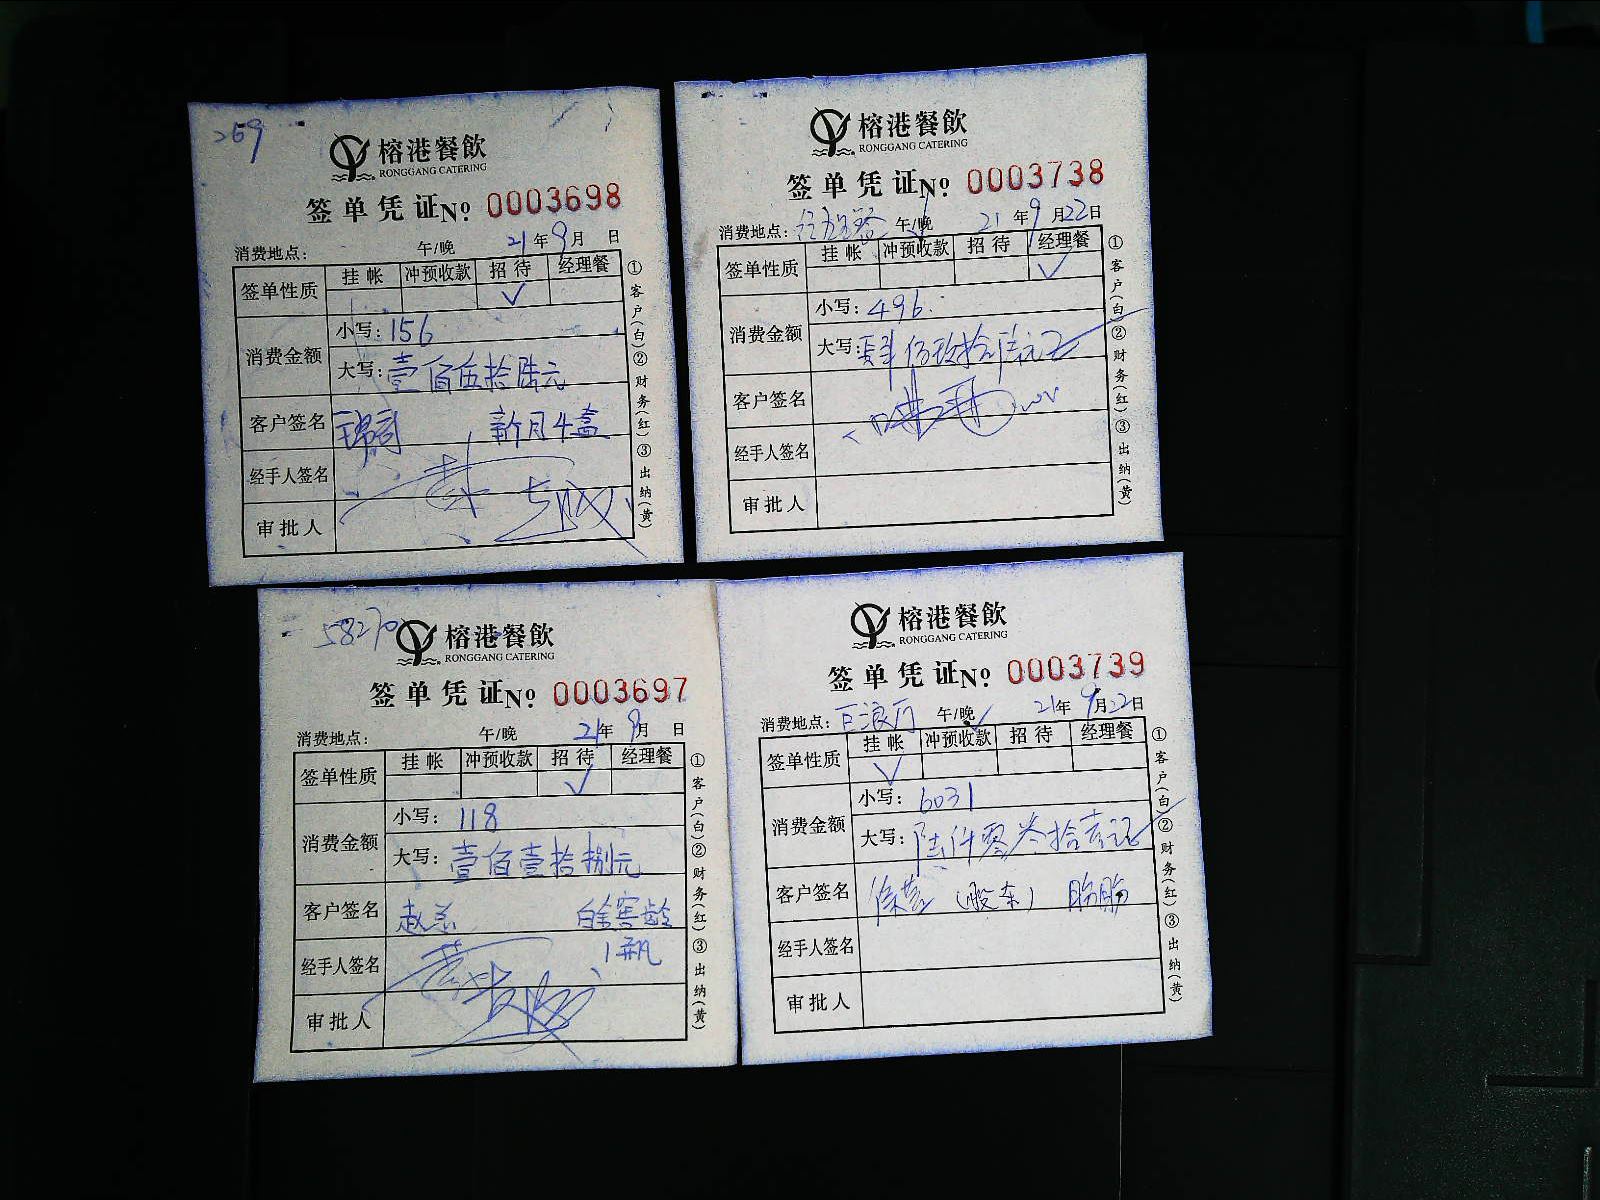 269
榕港餐飲
RONGGANG CATERING
签单凭证№ 0003698
消费地点: 午/晚 21年9月 日
签单性质 挂帐 冲预收款 招待 经理餐
✓
消费金额
小写: 156
大写: 壹佰伍拾陆元
客户签名 新月4盒
经手人签名
审批人
①客户(白)②财务(红)③出纳(黄)
榕港餐飲
RONGGANG CATERING
签单凭证№ 0003738
消费地点: 午/晚 21年9月22日
签单性质 挂帐 冲预收款 招待 经理餐
✓
消费金额
小写: 496.
大写: 肆佰玖拾陆元正
客户签名
经手人签名
审批人
①客户(白)②财务(红)③出纳(黄)
58270
榕港餐飲
RONGGANG CATERING
签单凭证№ 0003697
消费地点: 午/晚 21年9月 日
签单性质 挂帐 冲预收款 招待 经理餐
✓
消费金额
小写: 118
大写: 壹佰壹拾捌元
客户签名 赵总 白金窖龄
经手人签名 1瓶
审批人
①客户(白)②财务(红)③出纳(黄)
榕港餐飲
RONGGANG CATERING
签单凭证№ 0003739
消费地点: 巨浪厅 午/晚 21年9月22日
签单性质 挂帐 冲预收款 招待 经理餐
✓
消费金额
小写: 6031
大写: 陆仟零叁拾壹元正
客户签名 (股东)
经手人签名
审批人
①客户(白)②财务(红)③出纳(黄)